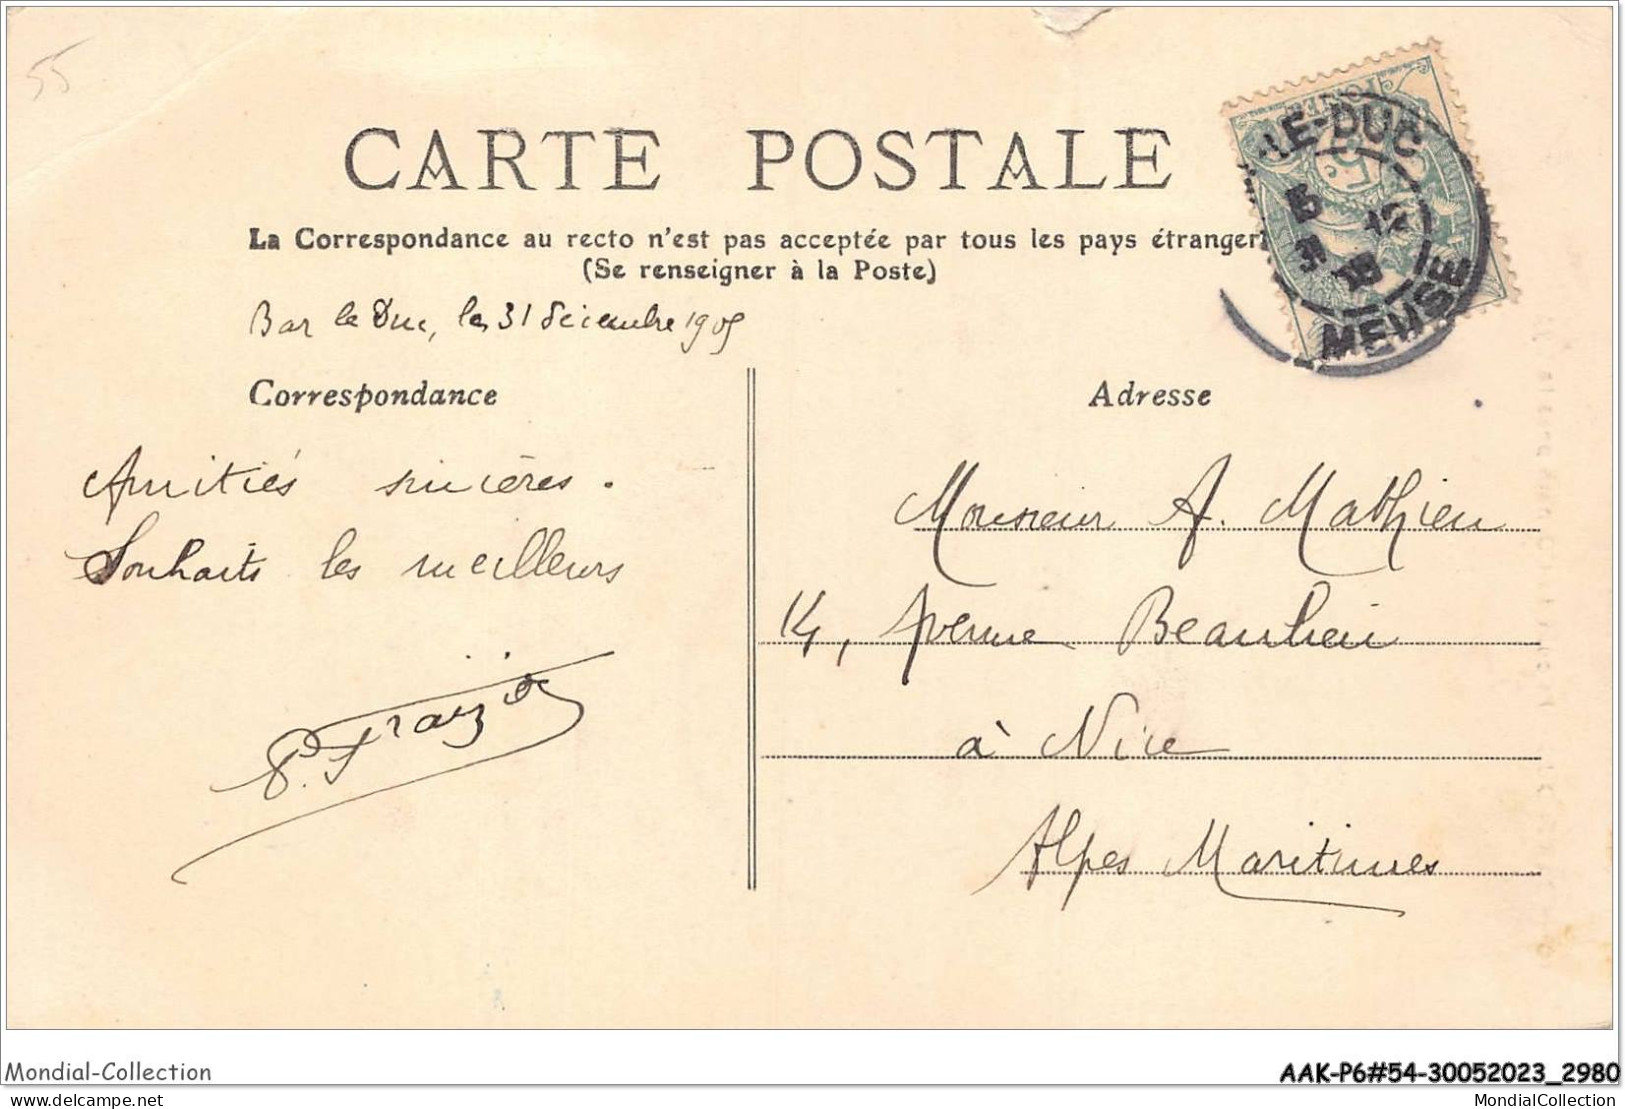 55
CARTE POSTALE
La Correspondance au recto n'est pas acceptée par tous les pays étrangers
(Se renseigner à la Poste)
LE-DUC
5 C
MEUSE
Bar le Duc, le 31 décembre 1905
Correspondance
Adresse
Amitiés sincères.
Souhaits les meilleurs
Monsieur A. Mathieu
14, Avenue Beaulieu
à Nice
Alpes Maritimes
Mondial-Collection
AAK-P6#54-30052023_2980
delcampe.net
MondialCollection